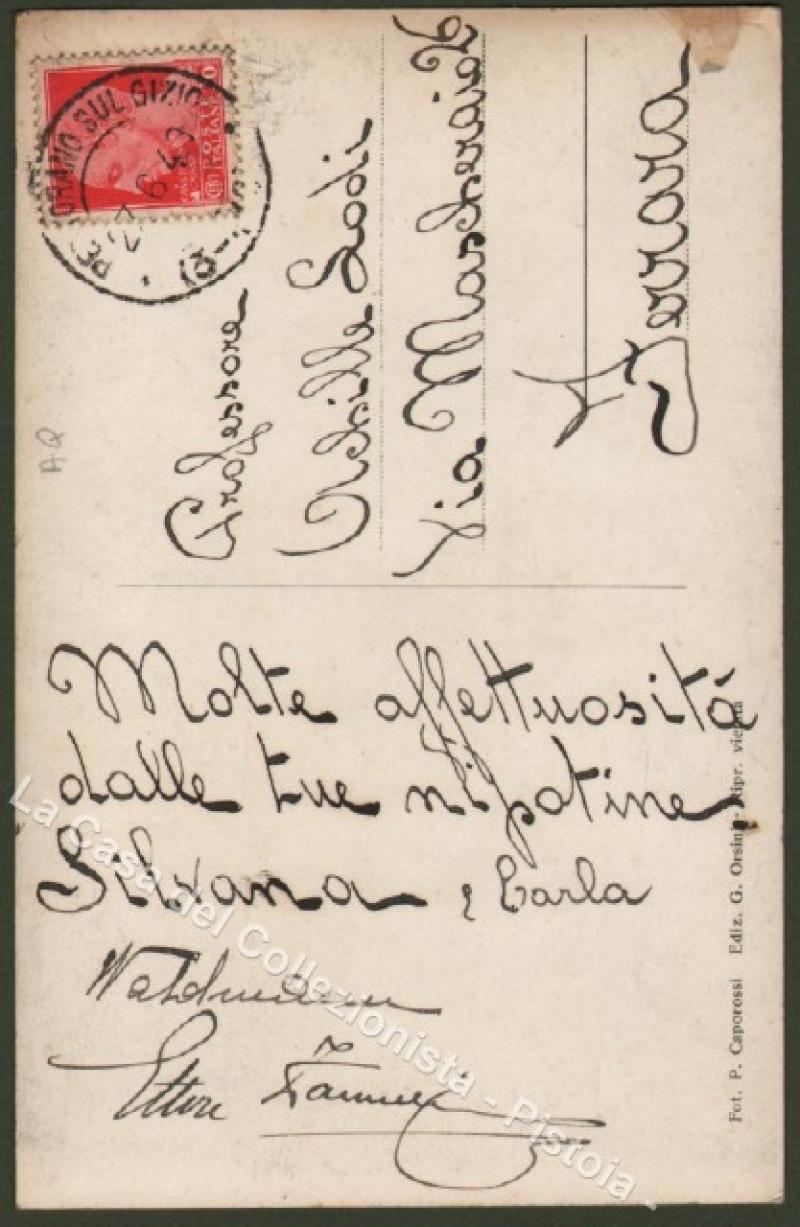 PETTORANO SUL GIZIO
POSTE ITALIANE
Professore
Achille Lodi
Via Mascheraio 26
Ferrara
AQ
Molte affettuosità
dalle tue nipotine
Silvana e Carla
Waldmann
Ettore
Fot. P. Caporossi Ediz. G. Orsini - Ripr. vietata
La Casa del Collezionista - Pistoia -